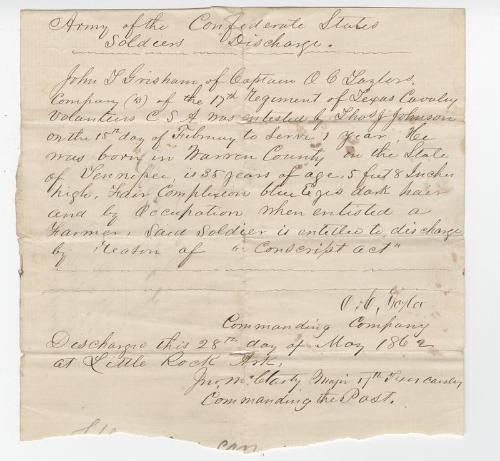 Army of the Confederate States
Soldiers Discharge.
John T Grisham of Captain O C Taylors
Company (D) of the 17th Regiment of Texas Cavalry
Volunteers C S A was enlisted by Thos J Johnson
on the 15th day of February to serve 1 year. He
was born in Warren County in the State
of Tennessee, is 35 years of age, 5 feet 8 Inches
high, Fair Complexion blue Eyes dark hair
and by Occupation when enlisted a
Farmer. Said Soldier is entitled to discharge
by reason of "Conscript act"
Commanding Company
Discharge this 28th day of May 1862
at Little Rock Ark.
Jno. McClarty Major 17th Texas Cavalry
Commanding the Post.